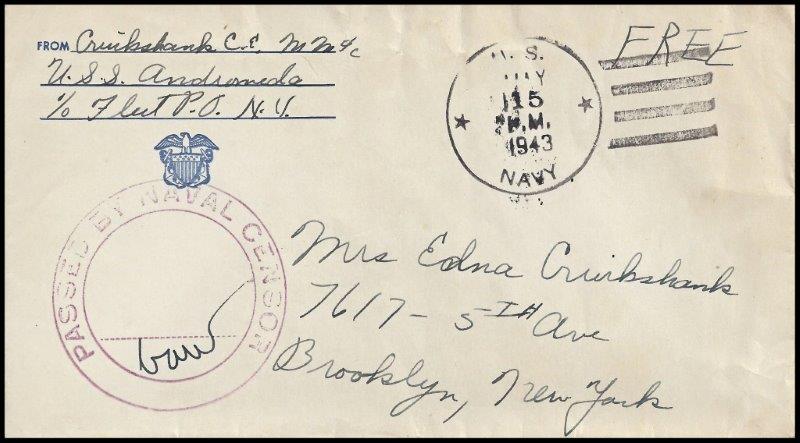 FROM Cruikshank C.E. MM2/c
U.S.S. Andromeda
c/o Fleet P.O. N.Y.
U.S.
MAY
15
P.M.
1943
NAVY
FREE
PASSED BY NAVAL CENSOR
Mrs Edna Cruikshank
7617 - 5TH Ave
Brooklyn, New York